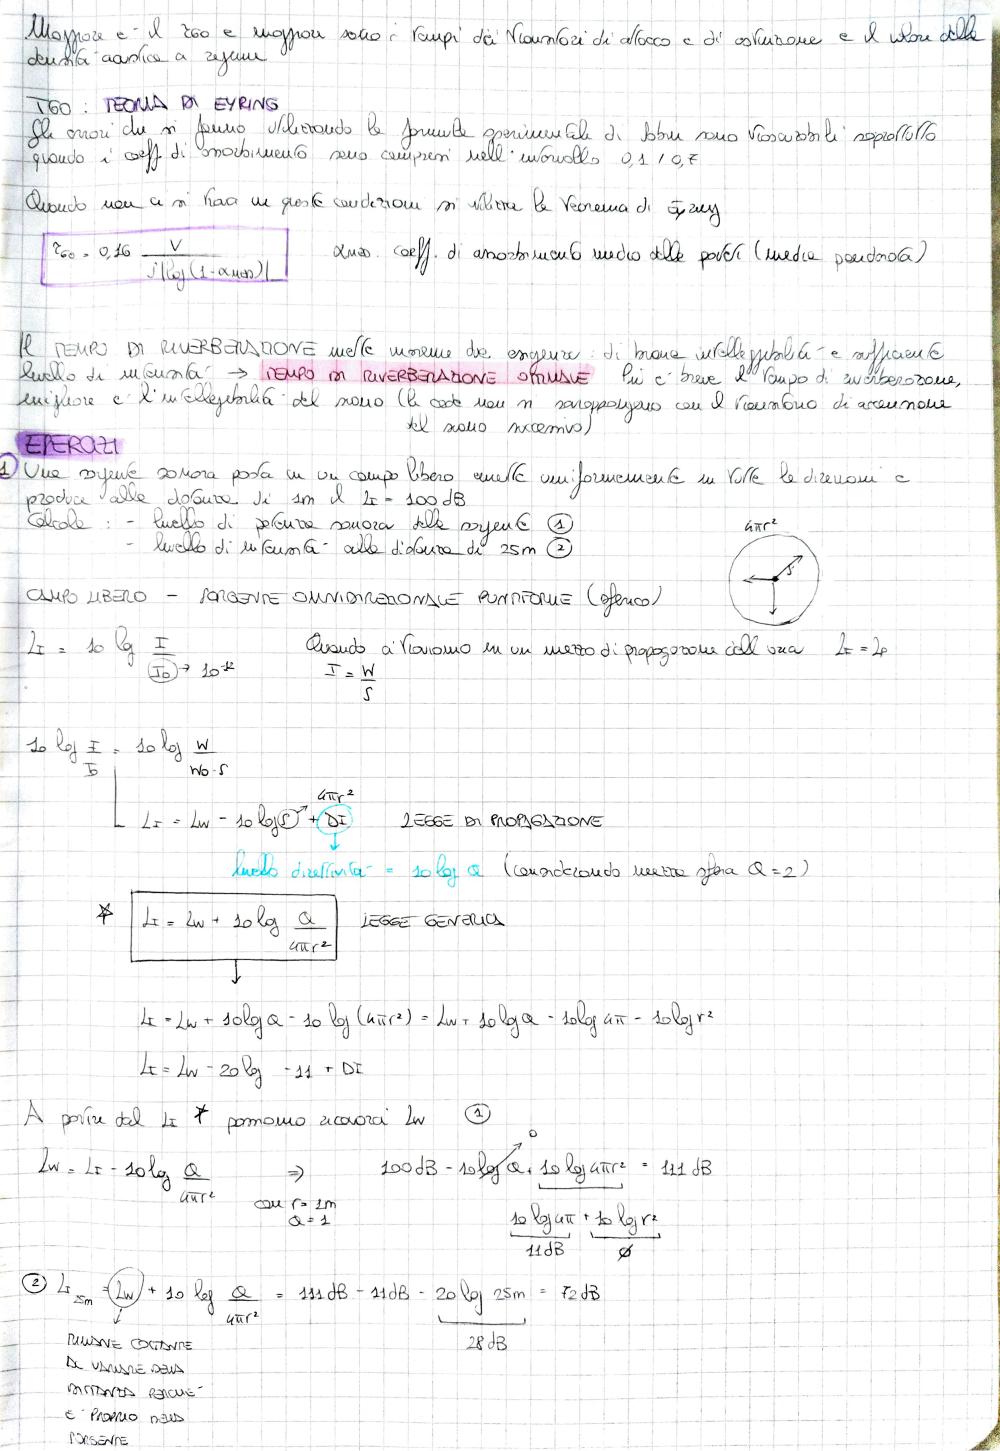 Maggiore è il τ60 e maggiori sono i tempi dei transitori di attacco e di estinzione e il valore della
densità acustica a regime
T60 : TEORIA DI EYRING
Gli errori che si fanno utilizzando le formule sperimentale di Sabin sono trascurabili soprattutto
quando i coeff. di assorbimento sono compresi nell'intervallo 0,1 / 0,7
Quando non ci si trova in queste condizioni si utilizza la teorema di Eyring
τ60 = 0,16 V / S |log (1-αmed)|
αmed. coeff. di assorbimento medio delle pareti (media ponderata)
Il TEMPO DI RIVERBERAZIONE mette insieme due esigenze : di buona intellegibilità e sufficiente
livello di intensità → TEMPO DI RIVERBERAZIONE OTTIMALE Più è breve il tempo di riverberazione,
migliore è l'intellegibilità del suono (le code non si sovrappongono con il transitorio di accensione
del suono successivo)
ESERCIZI
1 Una sorgente sonora posta in un campo libero emette uniformemente in tutte le direzioni e
produce alla distanza di 1m il LI = 100 dB
Calcola : - livello di potenza sonora della sorgente ①
- livello di intensità alla distanza di 25m ②
4πr²
r
CAMPO LIBERO - SORGENTE OMNIDIREZIONALE PUNTIFORME (sferico)
LI = 10 lg I / I0 → 10⁻¹²
Quando ci troviamo in un mezzo di propagazione dell'aria LI = Lp
I = W / S
10 log I / I0 = 10 log W / W0·S
4πr²
LI = LW - 10 log S + DI LEGGE DI PROPAGAZIONE
livello direttività = 10 log Q (considerando mezza sfera Q = 2)
* LI = LW + 10 log Q / 4πr² LEGGE GENERICA
LI = LW + 10 log Q - 10 log (4πr²) = LW + 10 log Q - 10 log 4π - 10 log r²
LI = LW - 20 log - 11 + DI
A partire dal LI * possiamo ricavarci LW ①
LW = LI - 10 log Q / 4πr² ⇒ 100 dB - 10 log Q + 10 log 4πr² = 111 dB
0
con r = 1m
Q = 1
10 log 4π + 10 log r²
11 dB ∅
② LI 25m = LW + 10 log Q / 4πr² = 111 dB - 11 dB - 20 log 25m = 72 dB
28 dB
RIMANE COSTANTE
AL VARIARE DELLA
DISTANZA PERCHÉ
È PROPRIO DELLA
SORGENTE